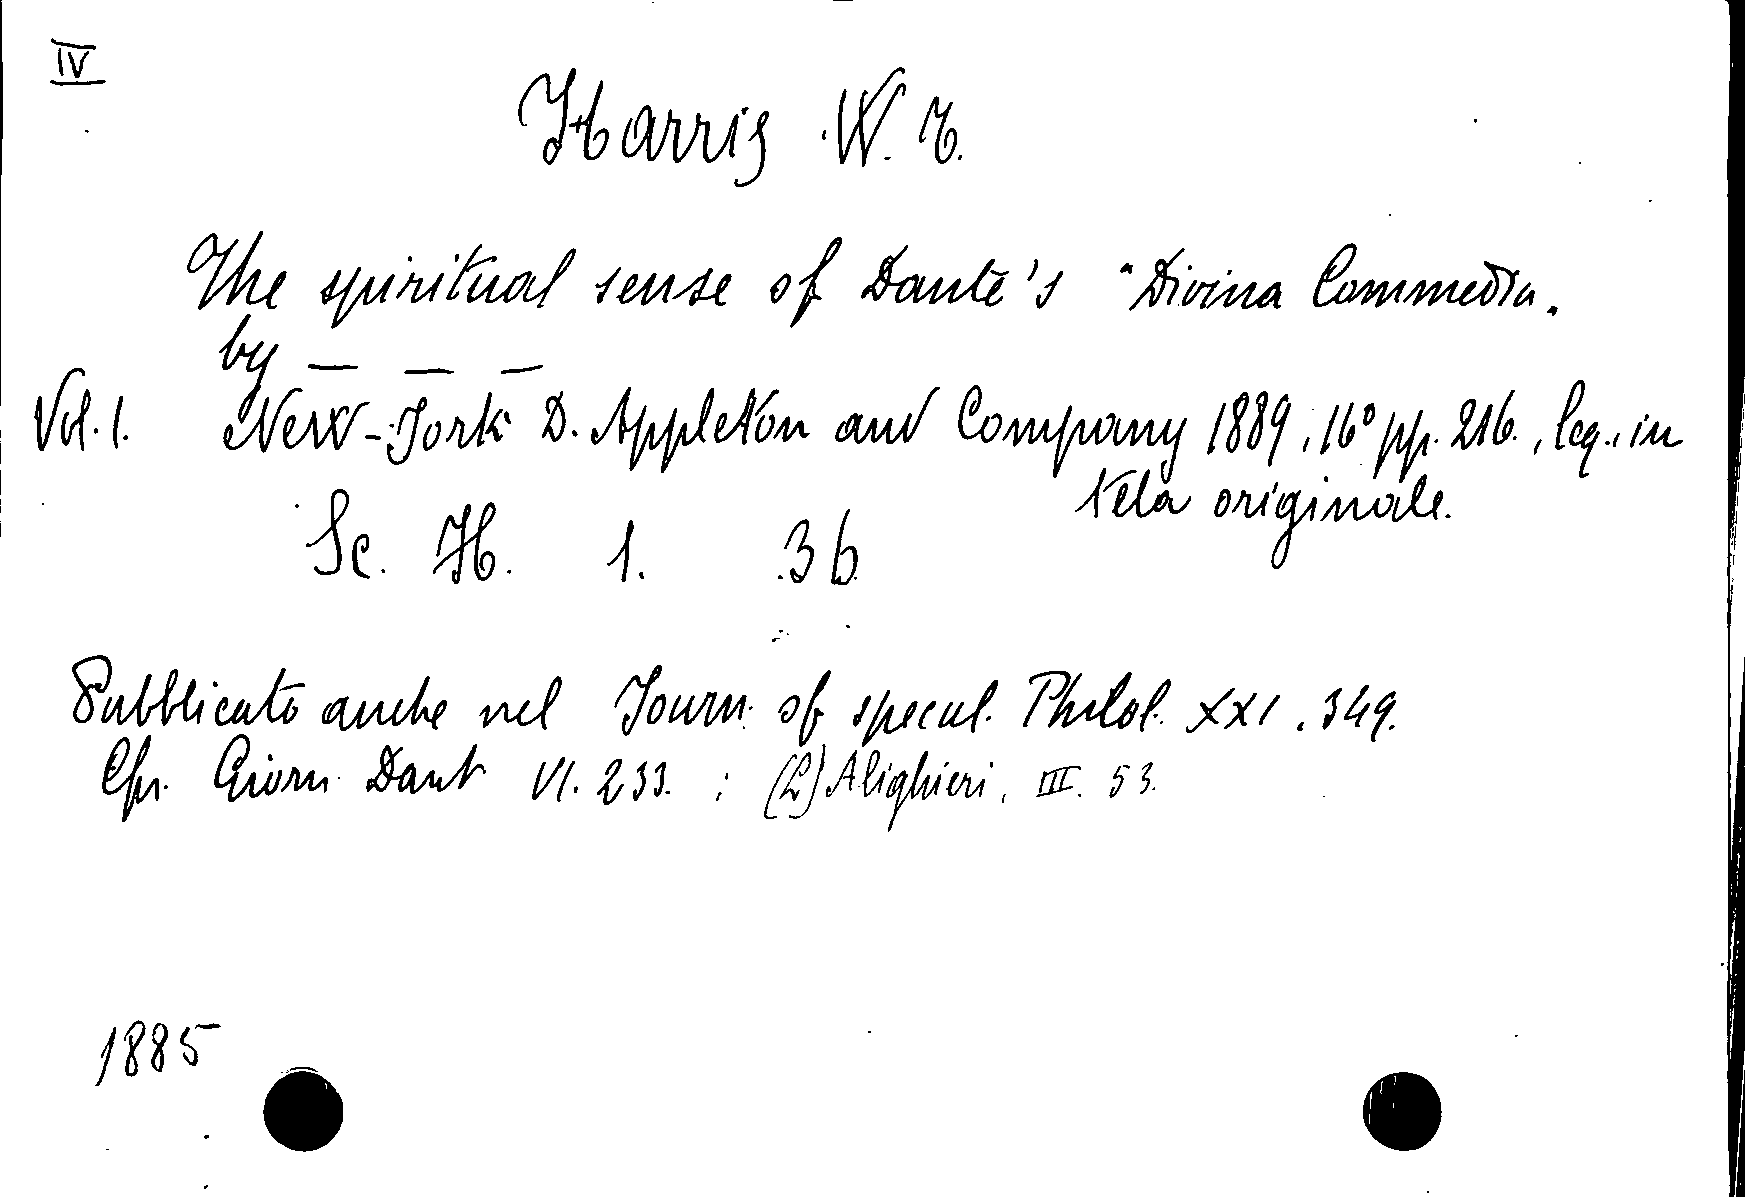 IV
Harris W. T.
The spiritual sense of Dante's "Divina Commedia"
by — — —
Vol. 1. New-York D. Appleton and Company 1889, 16° pp. 216., leg. in
tela originale.
Sc. H. 1. 36
Pubblicato anche nel Journ. of specul. Philol. XXI. 349.
Cfr. Giorn. Dant VI. 233. ; (L') Alighieri, III. 53.
1885